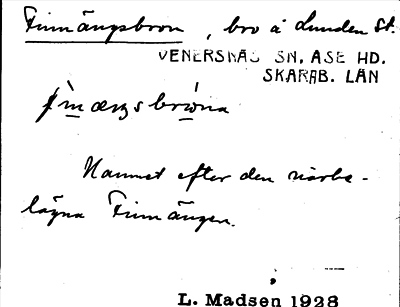 Finnängsbron, bro å Lunden St.
VENERSNÄS SN. ÅSE HD.
SKARAB. LÄN
Namnet efter den närbe-
lägna Finnängen.
L. Madsen 1928